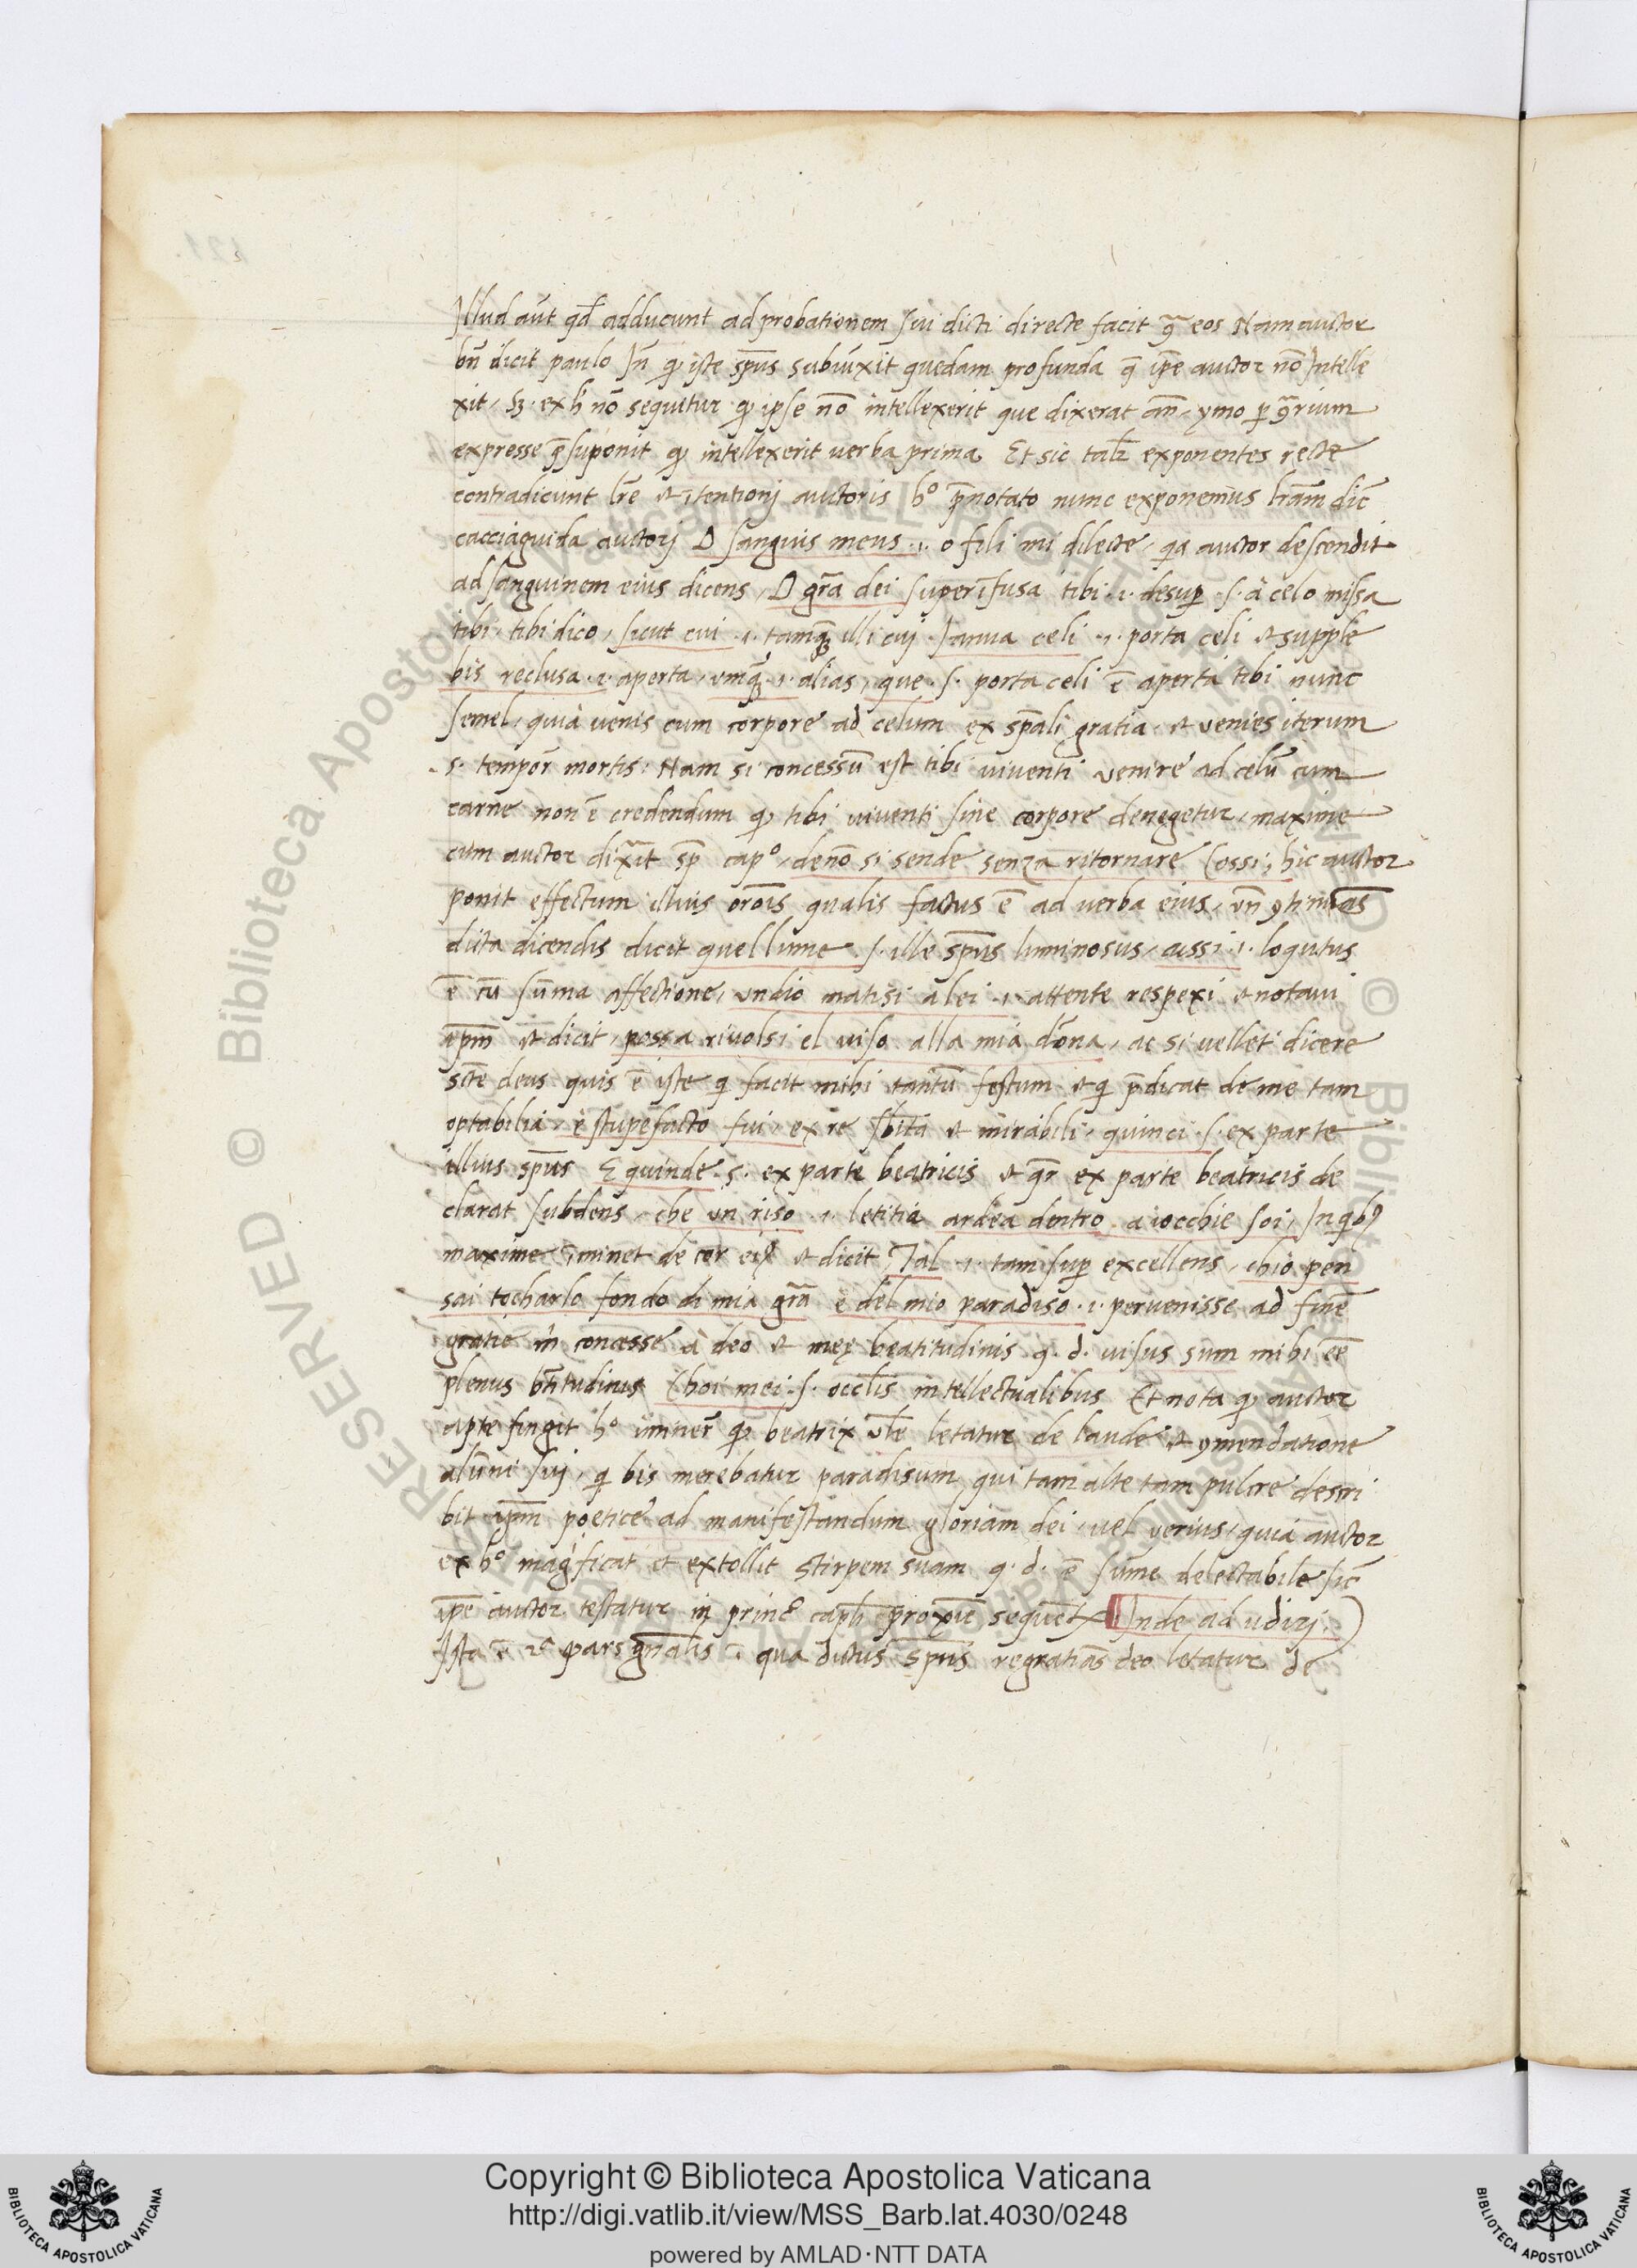 Illud aūt qđ adducunt ad probationem sui dicti directe facit ꝯ̄ eos Nam auctor
bn̄ dicit paulo In̄ ꝙ iste sp̄us subiūxit quedam profunda q̄ ip̄e auctor nō Intelle
xit, sꝫ ex h̄ nō sequitur ꝙ ipse nō intellexerit que dixerat an̄, ymo ꝑ ꝯ̄rium
expresse p̄suponit ꝙ intellexerit verba prima Et sic tal̄r exponentes recte
contradicunt lr̄e et ītentionj auctoris h° p̄notato nunc exponemus lr̄am dic̄
cacciaguida auctorj O sanguis meus .i. o fili mi dilecte, qa auctor descendit
ad sanguinem eius dicens, O gr̄a dei superīfusa tibi .i. desuꝑ .s. à celo missa
tibi, tibi dico, sicut cui .i. tamqȝ illi cuj Ianua celi .i. porta celi et supple
bis reclusa .i. aperta, vmqȝ .i. alias, que .s. porta celi ē aperta tibi nunc
semel, quia venis cum corpore ad celum ex sp̄ali gratia, et venies iterum
.s. tempor̄ mortis. Nam si concessū est tibi viventi venire ad celū cum
carne non ē credendum ꝙ tibi viventi sine corpore denegetur, maxime
cum auctor dixīt sp̄ cap°, denō si sende senza ritornare Cossi, hic auctor
ponit effectum illius or̄ois qualis factus ē ad verba eius, vn̄ ꝯtinuās
dicta dicendis dicit quel lume .s. ille sp̄us luminosus, cussi .i. loqutus
ē cū sūma affectione, undio matisi a lei .i. attente respexi et notaui
ip̄m et dicit, possa rivolsi el viso alla mia dōna, ac si vellet dicere
sc̄te deus quis ē iste q facit mihi tantū festum et q p̄dicat de me tam
optabilia, è stupefacto fui, ex re sb̄ita et mirabili, quinci .s. ex parte
illius sp̄us E quinde .s. ex parte beatricis et qr̄ ex parte beatricis de
clarat subdens, che un riso .i. letitia ardea dentro a iocchie soi, In qbꝰ
maxime ēminet decor eiꝰ et dicit Tal .i. tam suꝑ excellens, chio pen
sai tocharlo fondo di mia gr̄a e del mio paradiso .i. pervenisse ad finē
gratie m̄ concesse à deo et meȩ beatitudinis q. d. visus sum mihi eē
plenus bt̄itudinis Choi mei .s. occl̄is intellectualibus Et nota ꝙ auctor
apte fingit h° īminer̄ ꝙ beatrix vl̄e letatur de laude et ꝯmendatione
alūni suj, q bis merebatur paradisum, qui tam alte tam pulcre descri
bit ip̄m poetice ad manifestandum gloriam dei, vel verius, quia auctor
ex h° magīficat et extollit stirpem suam q. d. ē sūme delectabile sic̄
ip̄e auctor testatur in princ° capl̄i proxīe sequēt Inde ad udirj
Ista ē 2ᵃ pars gn̄alis ī qua dictus sp̄us regratiās deo letatur de
Copyright © Biblioteca Apostolica Vaticana
http://digi.vatlib.it/view/MSS_Barb.lat.4030/0248
powered by AMLAD·NTT DATA